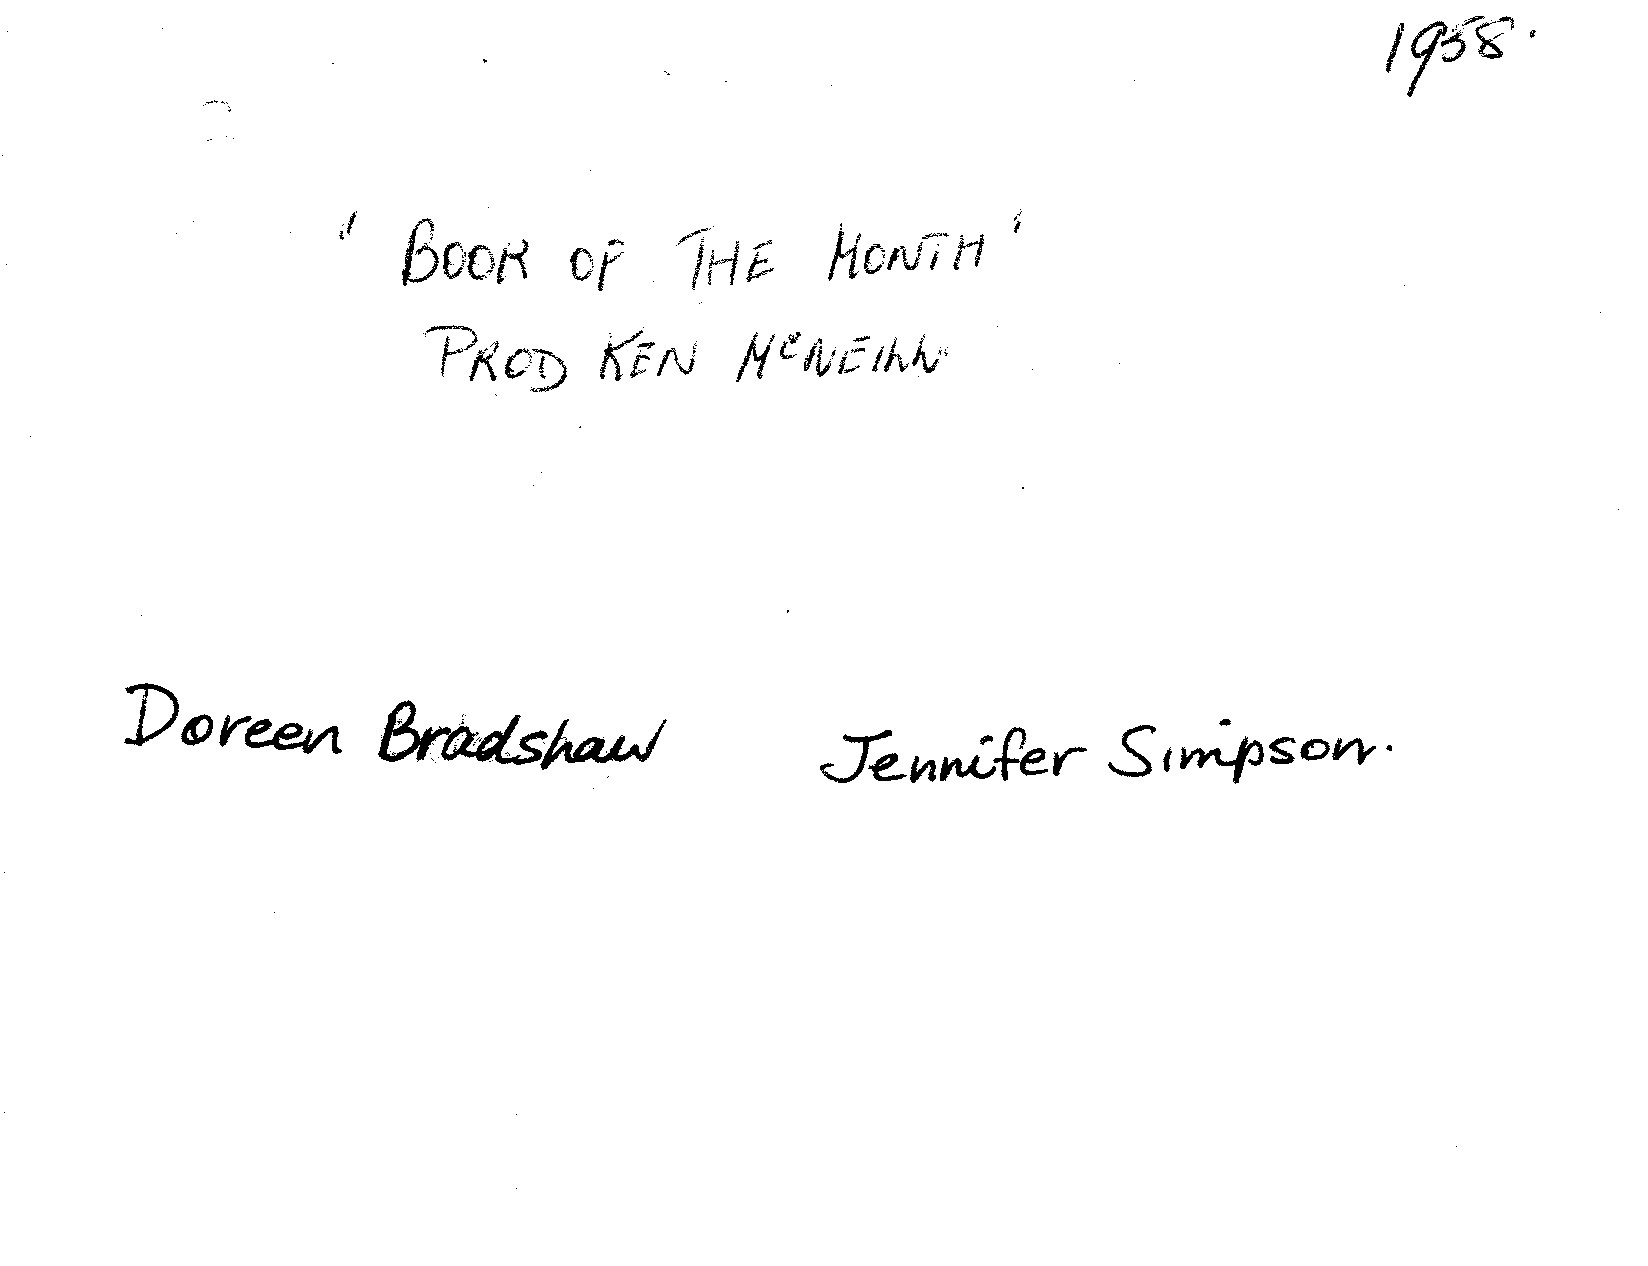 1958.
" BOOK OF THE MONTH '
PROD KEN McNEILL
Doreen Bradshaw Jennifer Simpson.